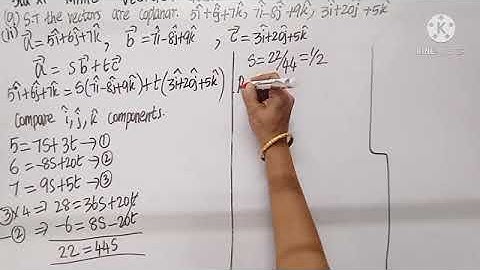 (ii) S.T the vectors are coplanar. 5î+6ĵ+7k̂, 7î-8ĵ+9k̂, 3î+20ĵ+5k̂
a⃗ = 5î+6ĵ+7k̂, b⃗ = 7î-8ĵ+9k̂, c⃗ = 3î+20ĵ+5k̂
a⃗ = s b⃗ + t c⃗
5î+6ĵ+7k̂ = s(7î-8ĵ+9k̂)+t(3î+20ĵ+5k̂)
Compare î, ĵ, k̂ components.
5 = 7s+3t → ①
6 = -8s+20t → ②
7 = 9s+5t → ③
③×4 ⇒ 28 = 36s+20t
-② ⇒ -6 = 8s-20t
22 = 44s
s = 22/44 = 1/2
KINEMASTER